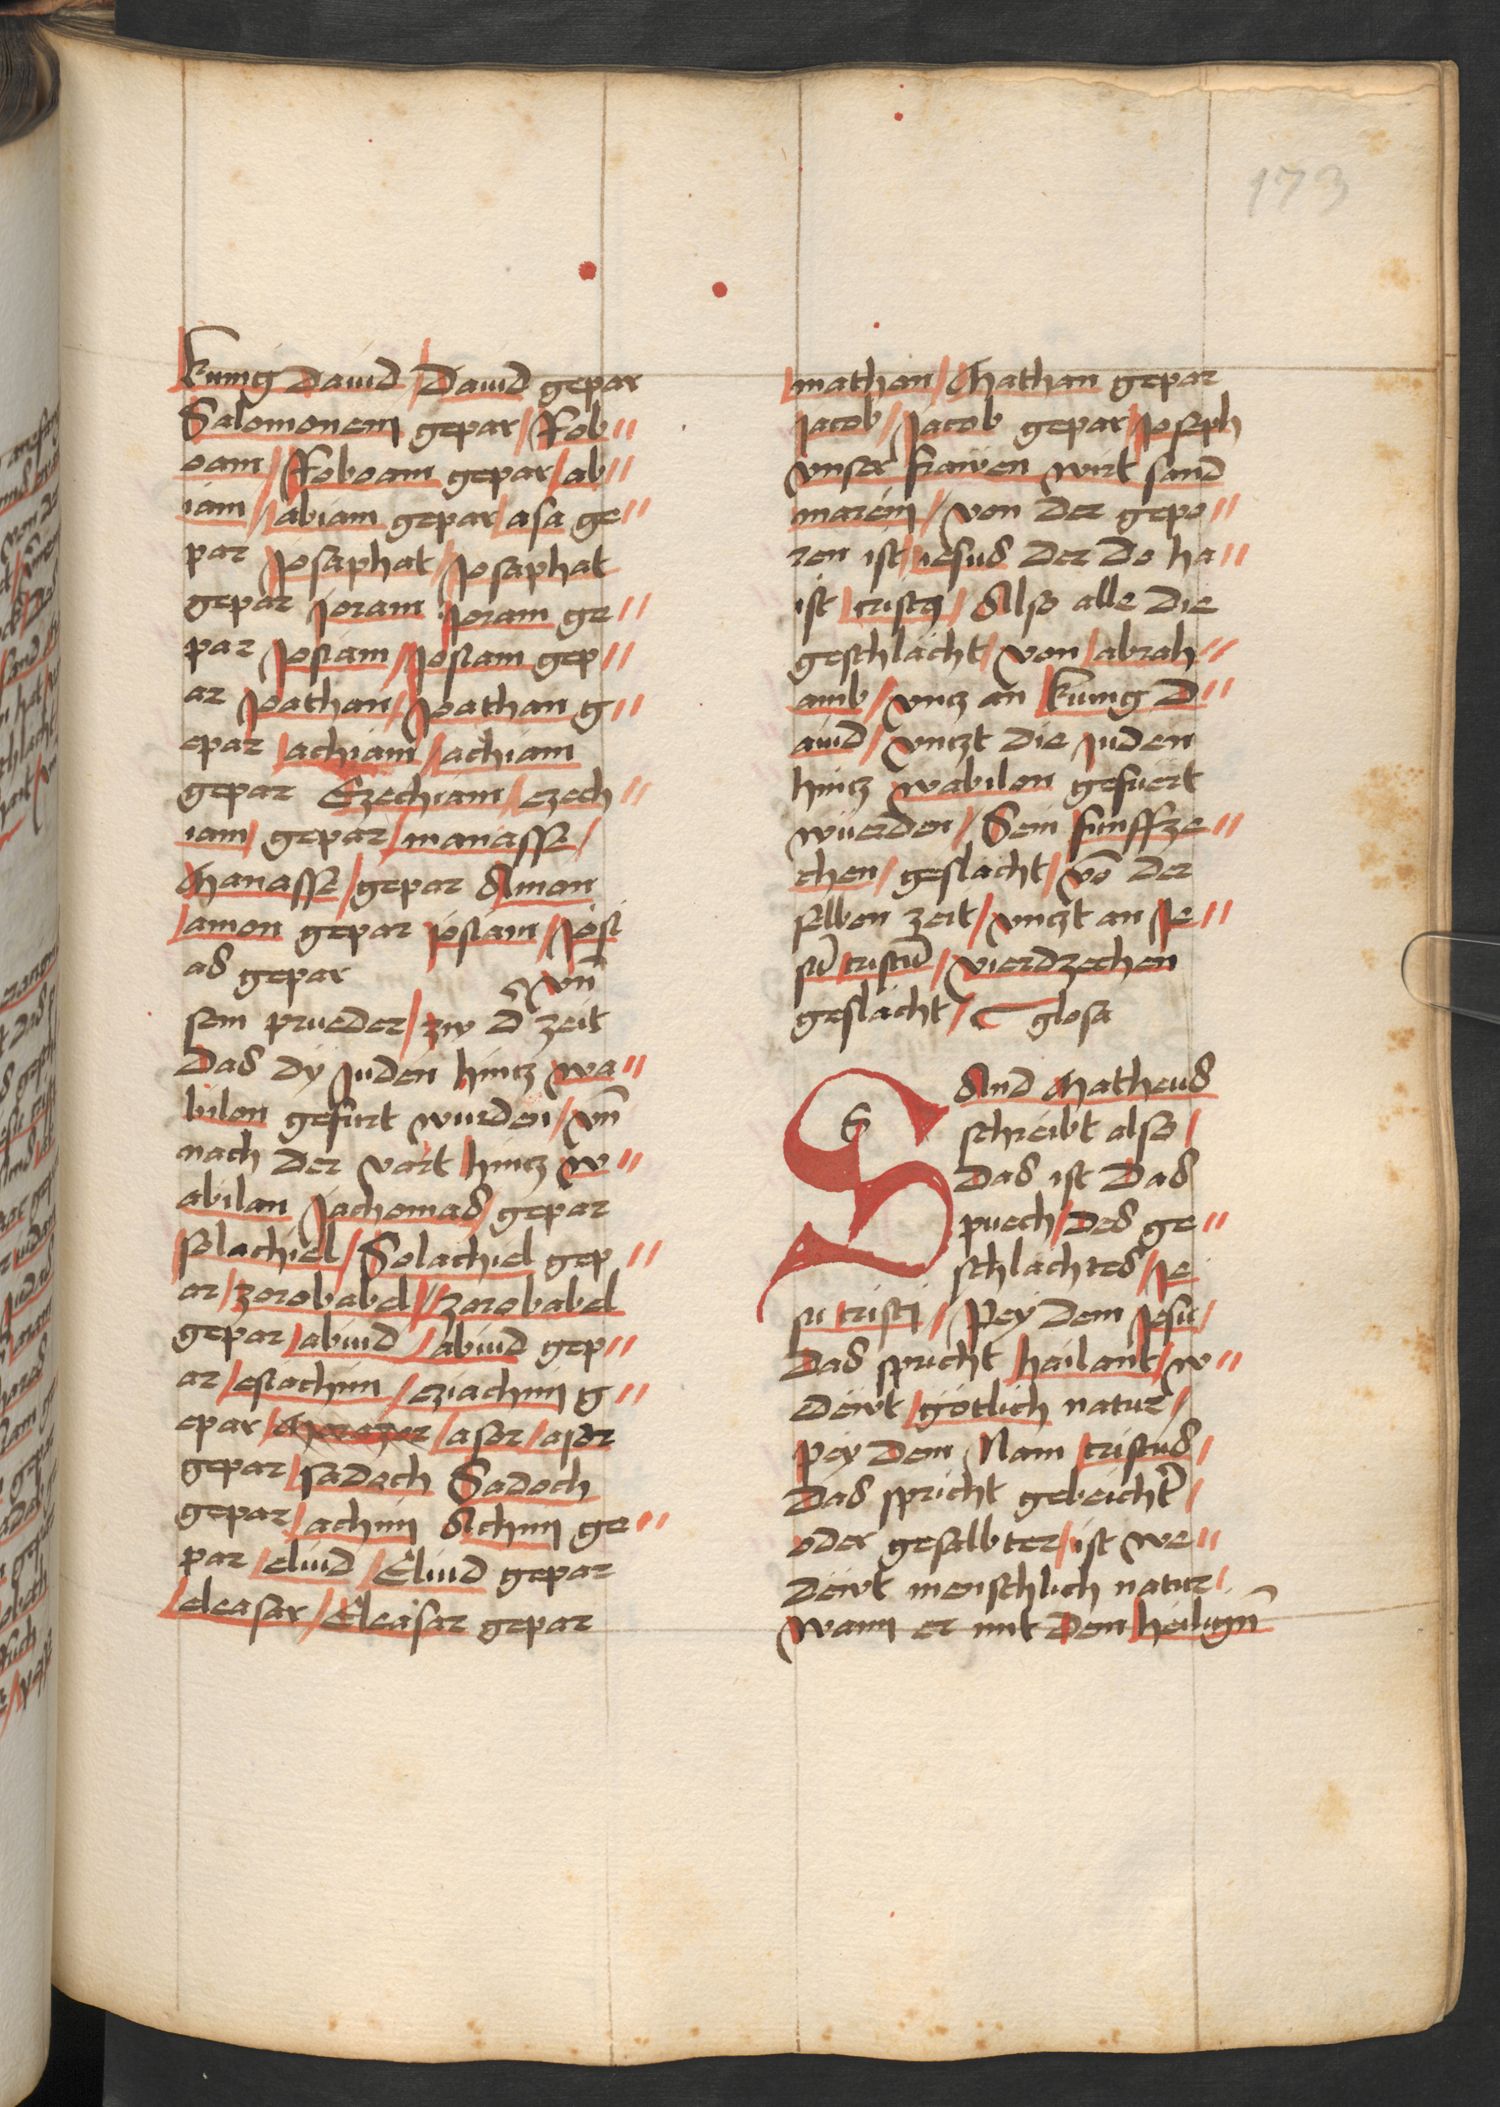 173
kunig dauid / Dauid gepar
Salomonem gepar / Rob//
oam / Roboam gepar / ab//
iam / abiam gepar / asa ge//
par Josaphat / Josaphat
gepar Joram Joram ge//
par Josiam / Josiam gep//
ar Joathan / Joathan g//
epar achiam / achiam
gepar Ezechiam / ezech//
iam / gepar / manasse /
Manasse / gepar Amon
amon gepar josiam / Josi
as gepar
vn̄
sein prueder / zw d̄ zeit
Das dy Juden hintz wa//
bilon gefurt wurden / vn̄
nach der vart hintz w//
abilan Jachonias / gepar
solachiel / Solachiel gep//
ar / zorobabel / zorobabel
gepar / abiud / abiud gep//
ar / esiachim / eziachim g//
epar / asor / asor
gepar / sadoch Sadoch
gepar / achim Achim ge//
par / eliud / Eliud gepar
eleasar / Eleasar gepar
mathan / Mathan gepar
Jacob / Jacob gepar / Joseph
vnser frawen wirt sand
marein / von der gepo//
ren ist / iesus der do ha//
ist / cristus / Also alle die
geschlächt / von / abrah//
amb / vntz an kunig D//
auid / vntzt die Juden
hintz wabilon gefuert
wuerden / Sein funffze//
chen / geslacht / vō der
selben zeit / vntzt an Je//
sū cristū / vierdzechen
geslächt / glosa
SAnd Matheus
schreibt also /
Das ist Das
puech / des ge//
schlachtes / Je
su cristi / Pey dem Jesu /
Das spricht hailant / w//
dewt / götlich natur /
pey dem Nam cristus /
Das spricht geweicht̄ /
oder gesalbter / ist we//
dewt menschlich natur /
wann er mit dem heilign̄